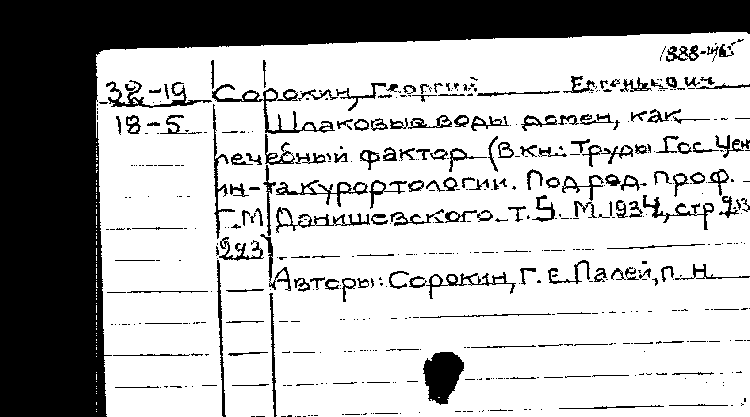 32-19 Сорокин, Георгий Евгеньевич
18-5. Шлаковые воды домен, как
лечебный фактор. (В кн.: Труды Гос. Цен
ин-та курортологии. Под ред. проф.
Г.М. Данишевского. т. 5. М. 1934, стр
293)
Авторы: Сорокин, Г. Е. Палей, П. Н.